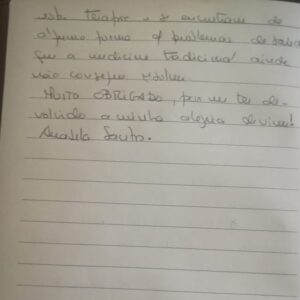 este terapia e se encontram de
alguma forma c/ problemas de saúde
que a medicina tradicional ainda
não consegue resolver.
MUITO OBRIGADO, por me ter de-
volvido a minha alegria de viver!
Anabela Santo.